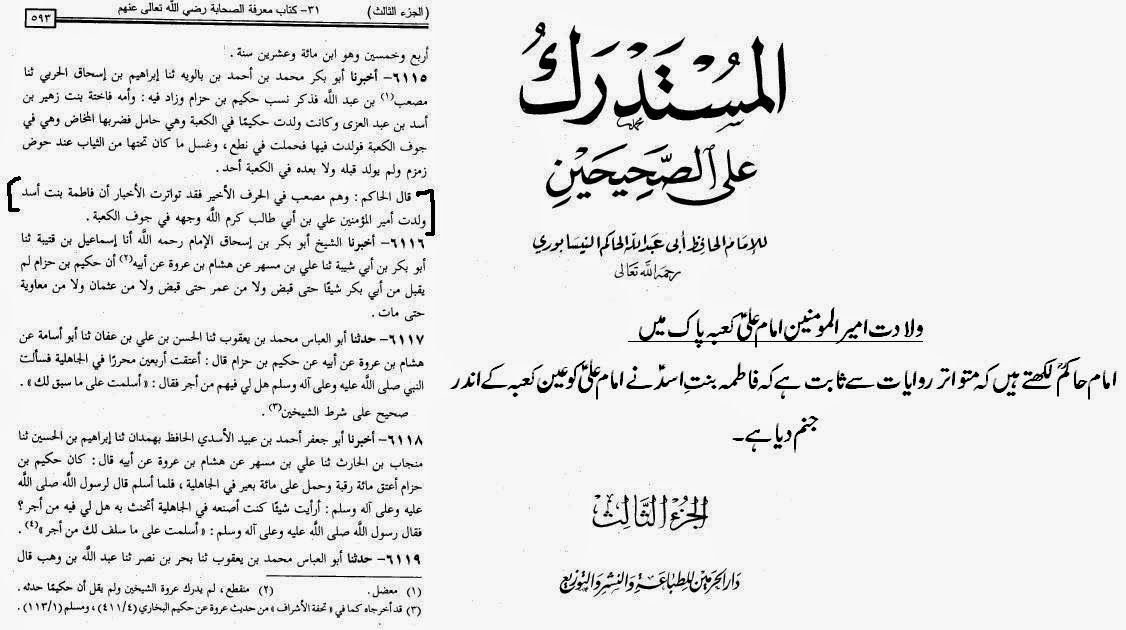 (الجزء الثالث) ٣١- كتاب معرفة الصحابة رضي الله تعالى عنهم ٥٩٣
أربع وخمسين وهو ابن مائة وعشرين سنة .
٦١١٥- أخبرنا أبو بكر محمد بن أحمد بن بالويه ثنا إبراهيم بن إسحاق الحربي ثنا
مصعب(١) بن عبد الله فذكر نسب حكيم بن حزام وزاد فيه : وأمه فاختة بنت زهير بن
أسد بن عبد العزى وكانت ولدت حكيمًا في الكعبة وهي حامل فضربها المخاض وهي في
جوف الكعبة فولدت فيها فحملت في نطع، وغسل ما كان تحتها من الثياب عند حوض
زمزم ولم يولد قبله ولا بعده في الكعبة أحد .
قال الحاكم : وهم مصعب في الحرف الأخير فقد تواترت الأخبار أن فاطمة بنت أسد
ولدت أمير المؤمنين علي بن أبي طالب كرم الله وجهه في جوف الكعبة .
٦١١٦- أخبرنا الشيخ أبو بكر بن إسحاق الإمام رحمه الله أنا إسماعيل بن قتيبة ثنا
أبو بكر بن أبي شيبة ثنا علي بن مسهر عن هشام بن عروة عن أبيه(٢) أن حكيم بن حزام لم
يقبل من أبي بكر شيئًا حتى قبض ولا من عمر حتى قبض ولا من عثمان ولا من معاوية
حتى مات .
٦١١٧- حدثنا أبو العباس محمد بن يعقوب ثنا الحسن بن علي بن عفان ثنا أبو أسامة عن
هشام بن عروة عن أبيه عن حكيم بن حزام قال : أعتقت أربعين محررًا في الجاهلية فسألت
النبي صلى الله عليه وعلى آله وسلم هل لي فيهم من أجر فقال : « أسلمت على ما سبق لك » .
صحيح على شرط الشيخين(٣) .
٦١١٨- أخبرنا أبو جعفر أحمد بن عبيد الأسدي الحافظ بهمدان ثنا إبراهيم بن الحسين ثنا
منجاب بن الحارث ثنا علي بن مسهر عن هشام بن عروة عن أبيه قال : كان حكيم بن
حزام أعتق مائة رقبة وحمل على مائة بعير في الجاهلية ، فلما أسلم قال لرسول الله صلى الله
عليه وعلى آله وسلم : أرأيت شيئًا كنت أصنعه في الجاهلية أتحنث به هل لي فيه من أجر ؟
فقال رسول الله صلى الله عليه وعلى آله وسلم : « أسلمت على ما سلف لك من أجر »(٤) .
٦١١٩- حدثنا أبو العباس محمد بن يعقوب ثنا بحر بن نصر ثنا عبد الله بن وهب قال
(١) معضل . (٢) منقطع، لم يدرك عروة الشيخين ولم يقل أن حكيمًا حدثه .
(٣) قد أخرجاه كما في « تحفة الأشراف » من حديث عروة عن حكيم البخاري (٤١١/٤) ، ومسلم (١١٣/١) .
المستدرك
على الصحيحين
للإمام الحافظ أبي عبد الله الحاكم النيسابوري
رحمه الله تعالى
ولادت امیر المومنین امام علیؑ کعبہ پاک میں
امام حاکمؒ لکھتے ہیں کہ متواتر روایات سے ثابت ہے کہ فاطمہ بنتِ اسدؑ نے امام علیؑ کو عین کعبہ کے اندر
جنم دیا ہے۔
الجزء الثالث
دار الحرمين للطباعة والنشر والتوزيع